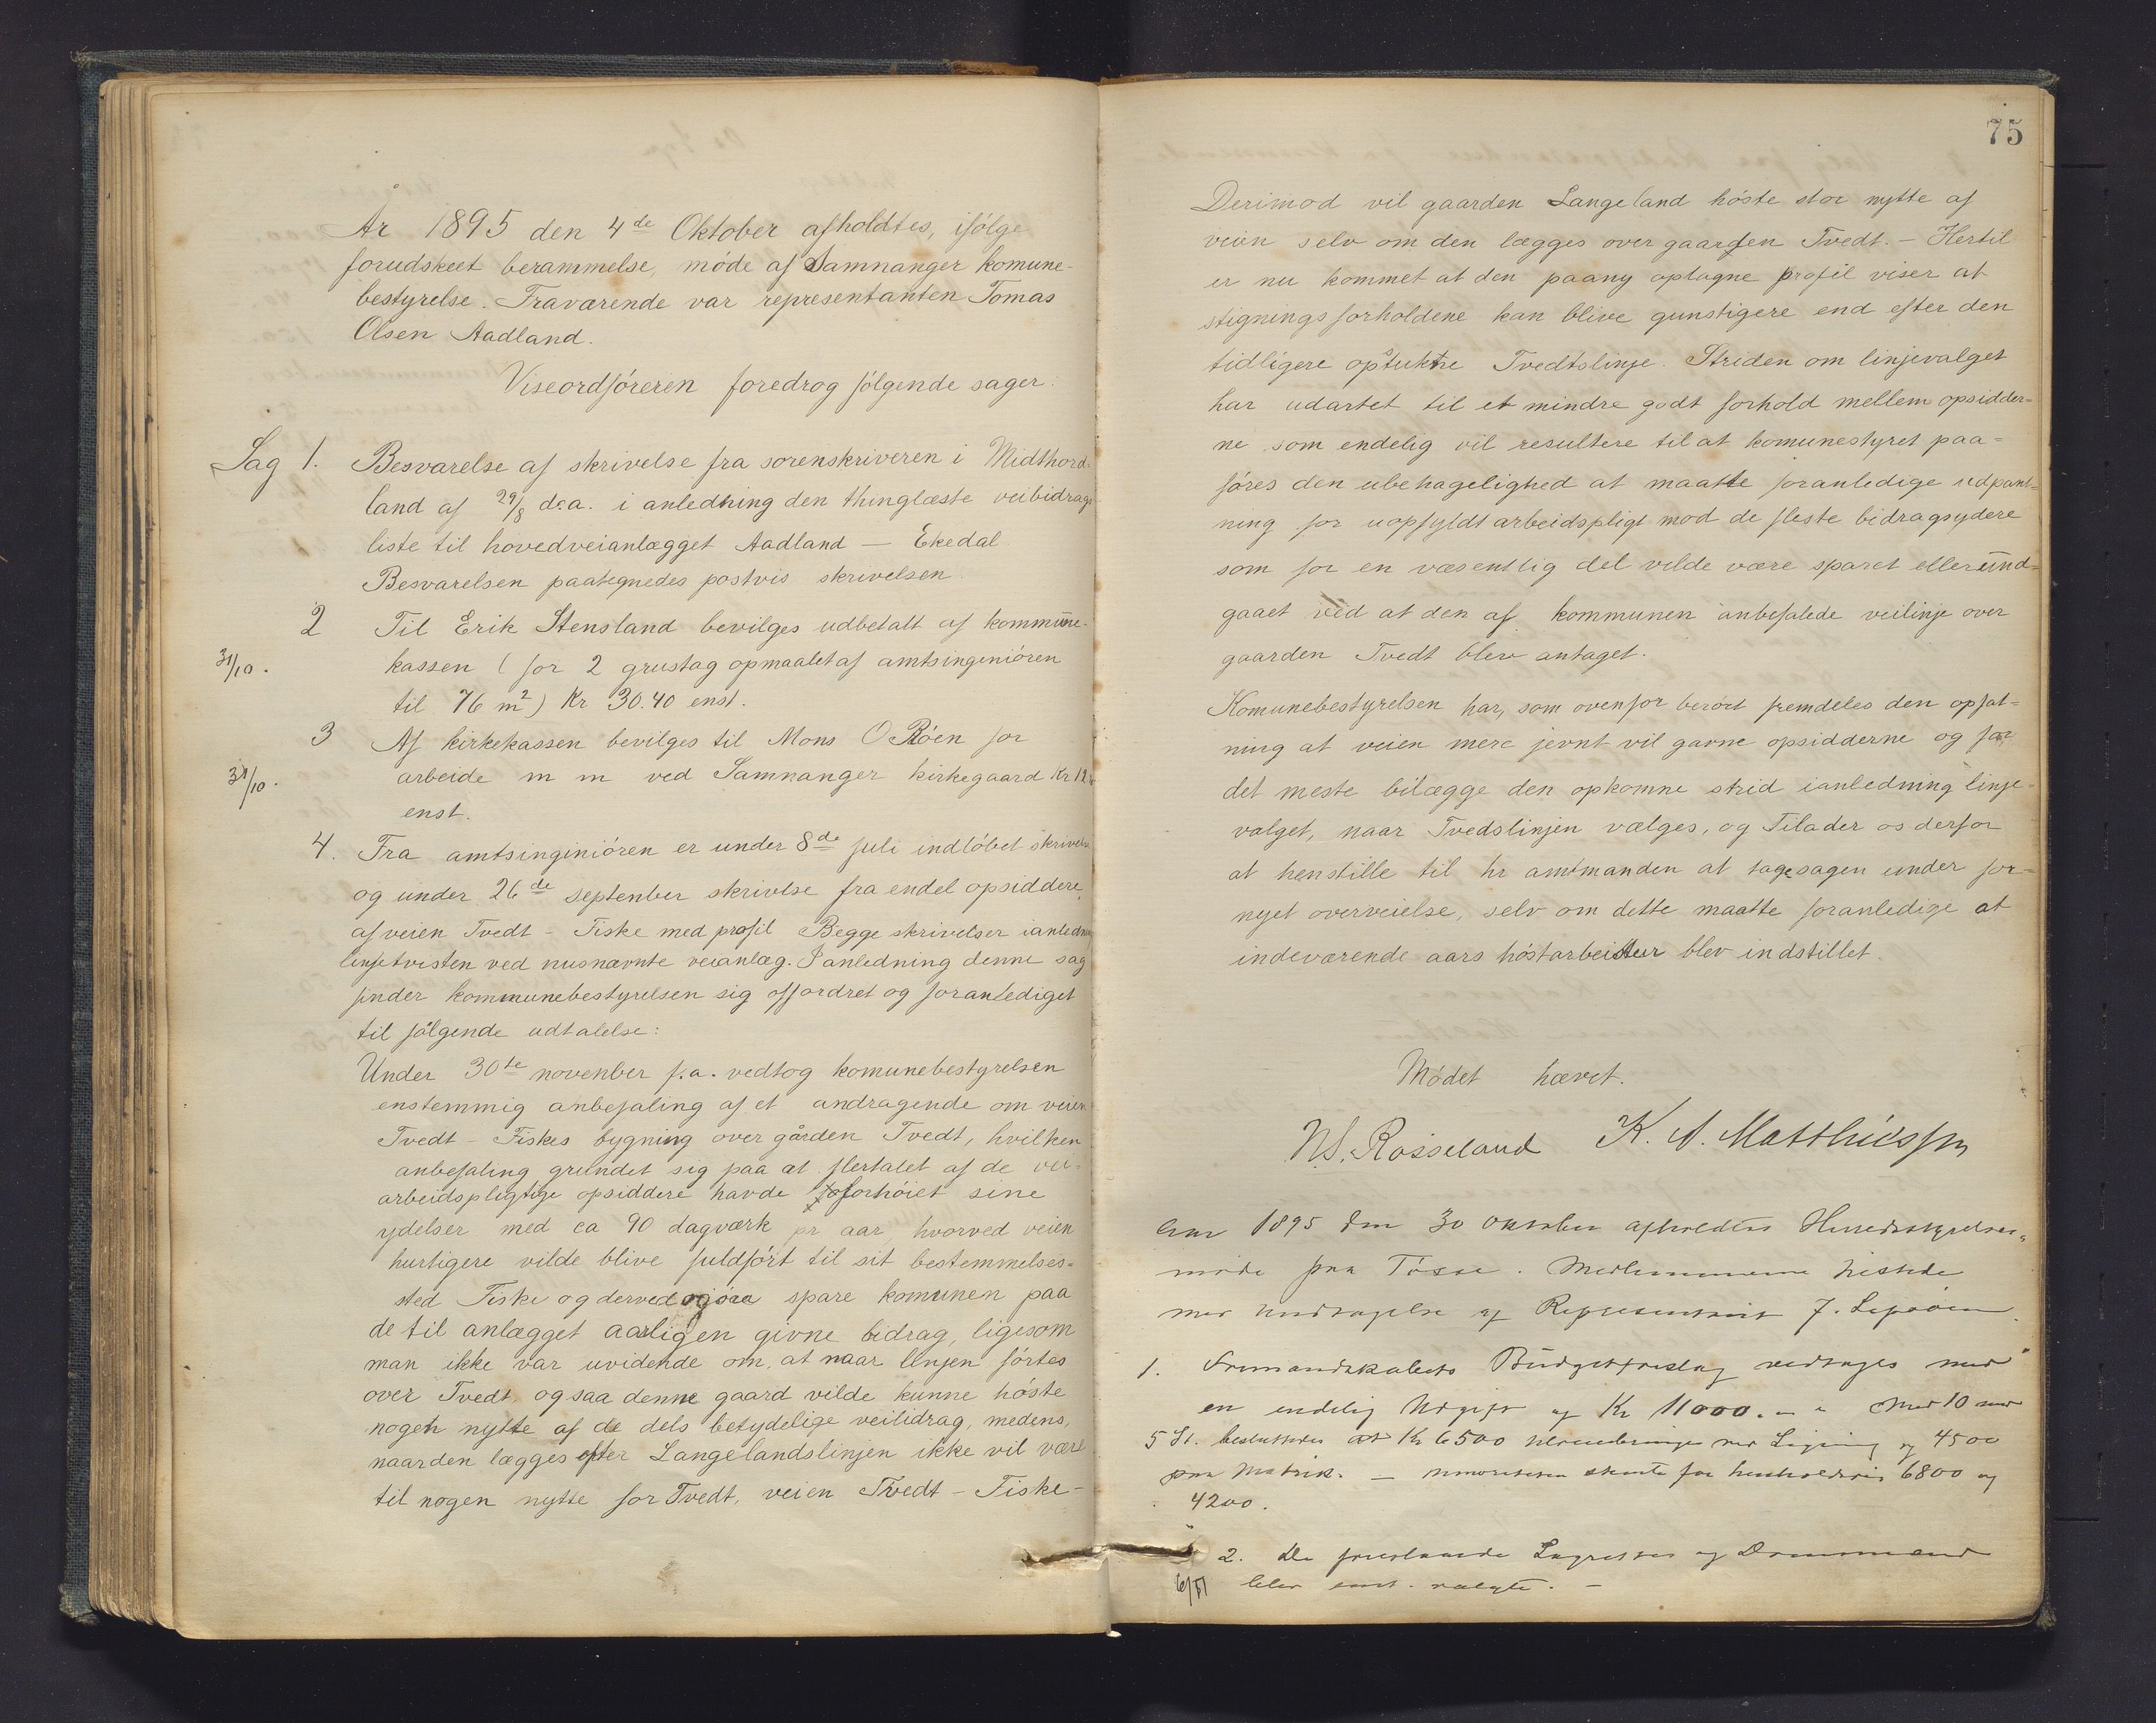 År 1895 den 4de Oktober afholdtes, ifólge
forudskeet berammelse, móde af Samnanger komune-
bestyrelse. Fraværende var representanten Tomas
Olsen Aadland.
Viseordfóreren foredrog fólgende sager:
Sag 1. Besvarelse af skrivelse fra sorenskriveren i Midthord-
land af 29/8 d.a. i anledning den thinglæste veibidrags
liste til hovedveianlægget Aadland — Ekedal
Besvarelsen paategnedes postvis skrivelsen.
2 Til Erik Stensland bevilges udbetalt af kommune-
31/10. kassen (for 2 grustag opmaalet af amtsingenióren
til 76 m2) Kr 30.40 enst.
3 Af kirkekassen bevilges til Mons O Róen for
31/10. arbeide m m ved Samnanger kirkegaard Kr 12
enst.
4. Fra amtsinginióren er under 8de juli indlóbet skrivelse
og under 26de septenber skrivlse fra endel opsiddere
af veien Tvedt - Fiske med profil Begge skrivelser ianledning
linjetvisten ved nusnævnte veianlæg. I anledning denne sag
finder kommunebestyrelsen sig offordret og foranlediget
til fólgende udtalelse:
Under 30te novenber f.a. vedtog komunebestyrelsen
enstemmig anbefaling af et andragende om veien
Tvedt - Fiskes bygning over gården Tvedt, hvilken
anbefaling grundet sig paa at flertalet af de vei-
arbeidspligtige opsiddere havde forhóiet sine
ydelser med ca 90 dagværk pr aar, hvorved veien
hurtigere vilde blive fuldfórt til sit bestemmelses=
sted Fiske og derved ogsaa spare komunen paa
de til anlægget aarligen givne bidrag, ligesom
man ikke var uvidende om, at naar linjen fórtes
over Tvedt, ogsaa denne gaard vilde kunne hóste
nogen nytte af de dels betydelige veilidrag, medens,
naarden lægges efter Langelandslinjen ikke vil være
til nogen nytte for Tvedt, veien Tvedt - Fiske -
75
Derimod vil gaarden Langeland hóste stor nytte af
veien selv om den lægges over gaarden Tvedt. — Hertil
er nu kommet at den paany optagne profil viser at
stigningsforholdene kan blive gunstigere end efter den
tidligere opstukne Tvedtslinje. Striden om linjevalget
har udartet til et mindre godt forhold mellem opsidder=
ne som endelig vil resultere til at komunestyret paa=
fóres den ubehagelighed at maatte foranledige udpant=
ning for uopfyldt arbeidspligt mod de fleste bidragsydere
som for en væsentlig del vilde være sparet eller und=
gaaet ved at den af kommunen anbefalede veilinje over
gaarden Tvedt blev antaget.
Komunebestyrelsen har, som ovenfor berórt fremdeles den opfat=
ning at veien mere jevnt vil gavne opsidderne og for
det meste bilægge den opkomne strid ianledning linje-
valget, naar Tvedslinjen vælges, og Tilader os derfor
at henstille til hr amtmanden at tage sagen under for=
nyet overveielse, selv om dette maatte foranledige at
indeværende aars hóstarbeider blev indstillet.
Módet hævet.
N.S. Rosseland K. A. Matthiessen
Aar 1895 den 30 Oktober afholdtes Herredsstyrelses-
móde paa Tósse. Medlemmerne tilstede
med Undtagelse af Representant J. Lepsöen.
1. Formandskabets Budgetforslag vedtages med
en endelig Udgift af Kr 11000.- - Med 10 mod
5 St. besluttedes at Kr 6500 udredes ved Ligning og 4500
paa Matrik. — Minoriteten stemte for henholdsvis 6800 og
4200.
2. De foreslaaede Lagrettes og Domsmænd
6/11 blev enst. valgte. —